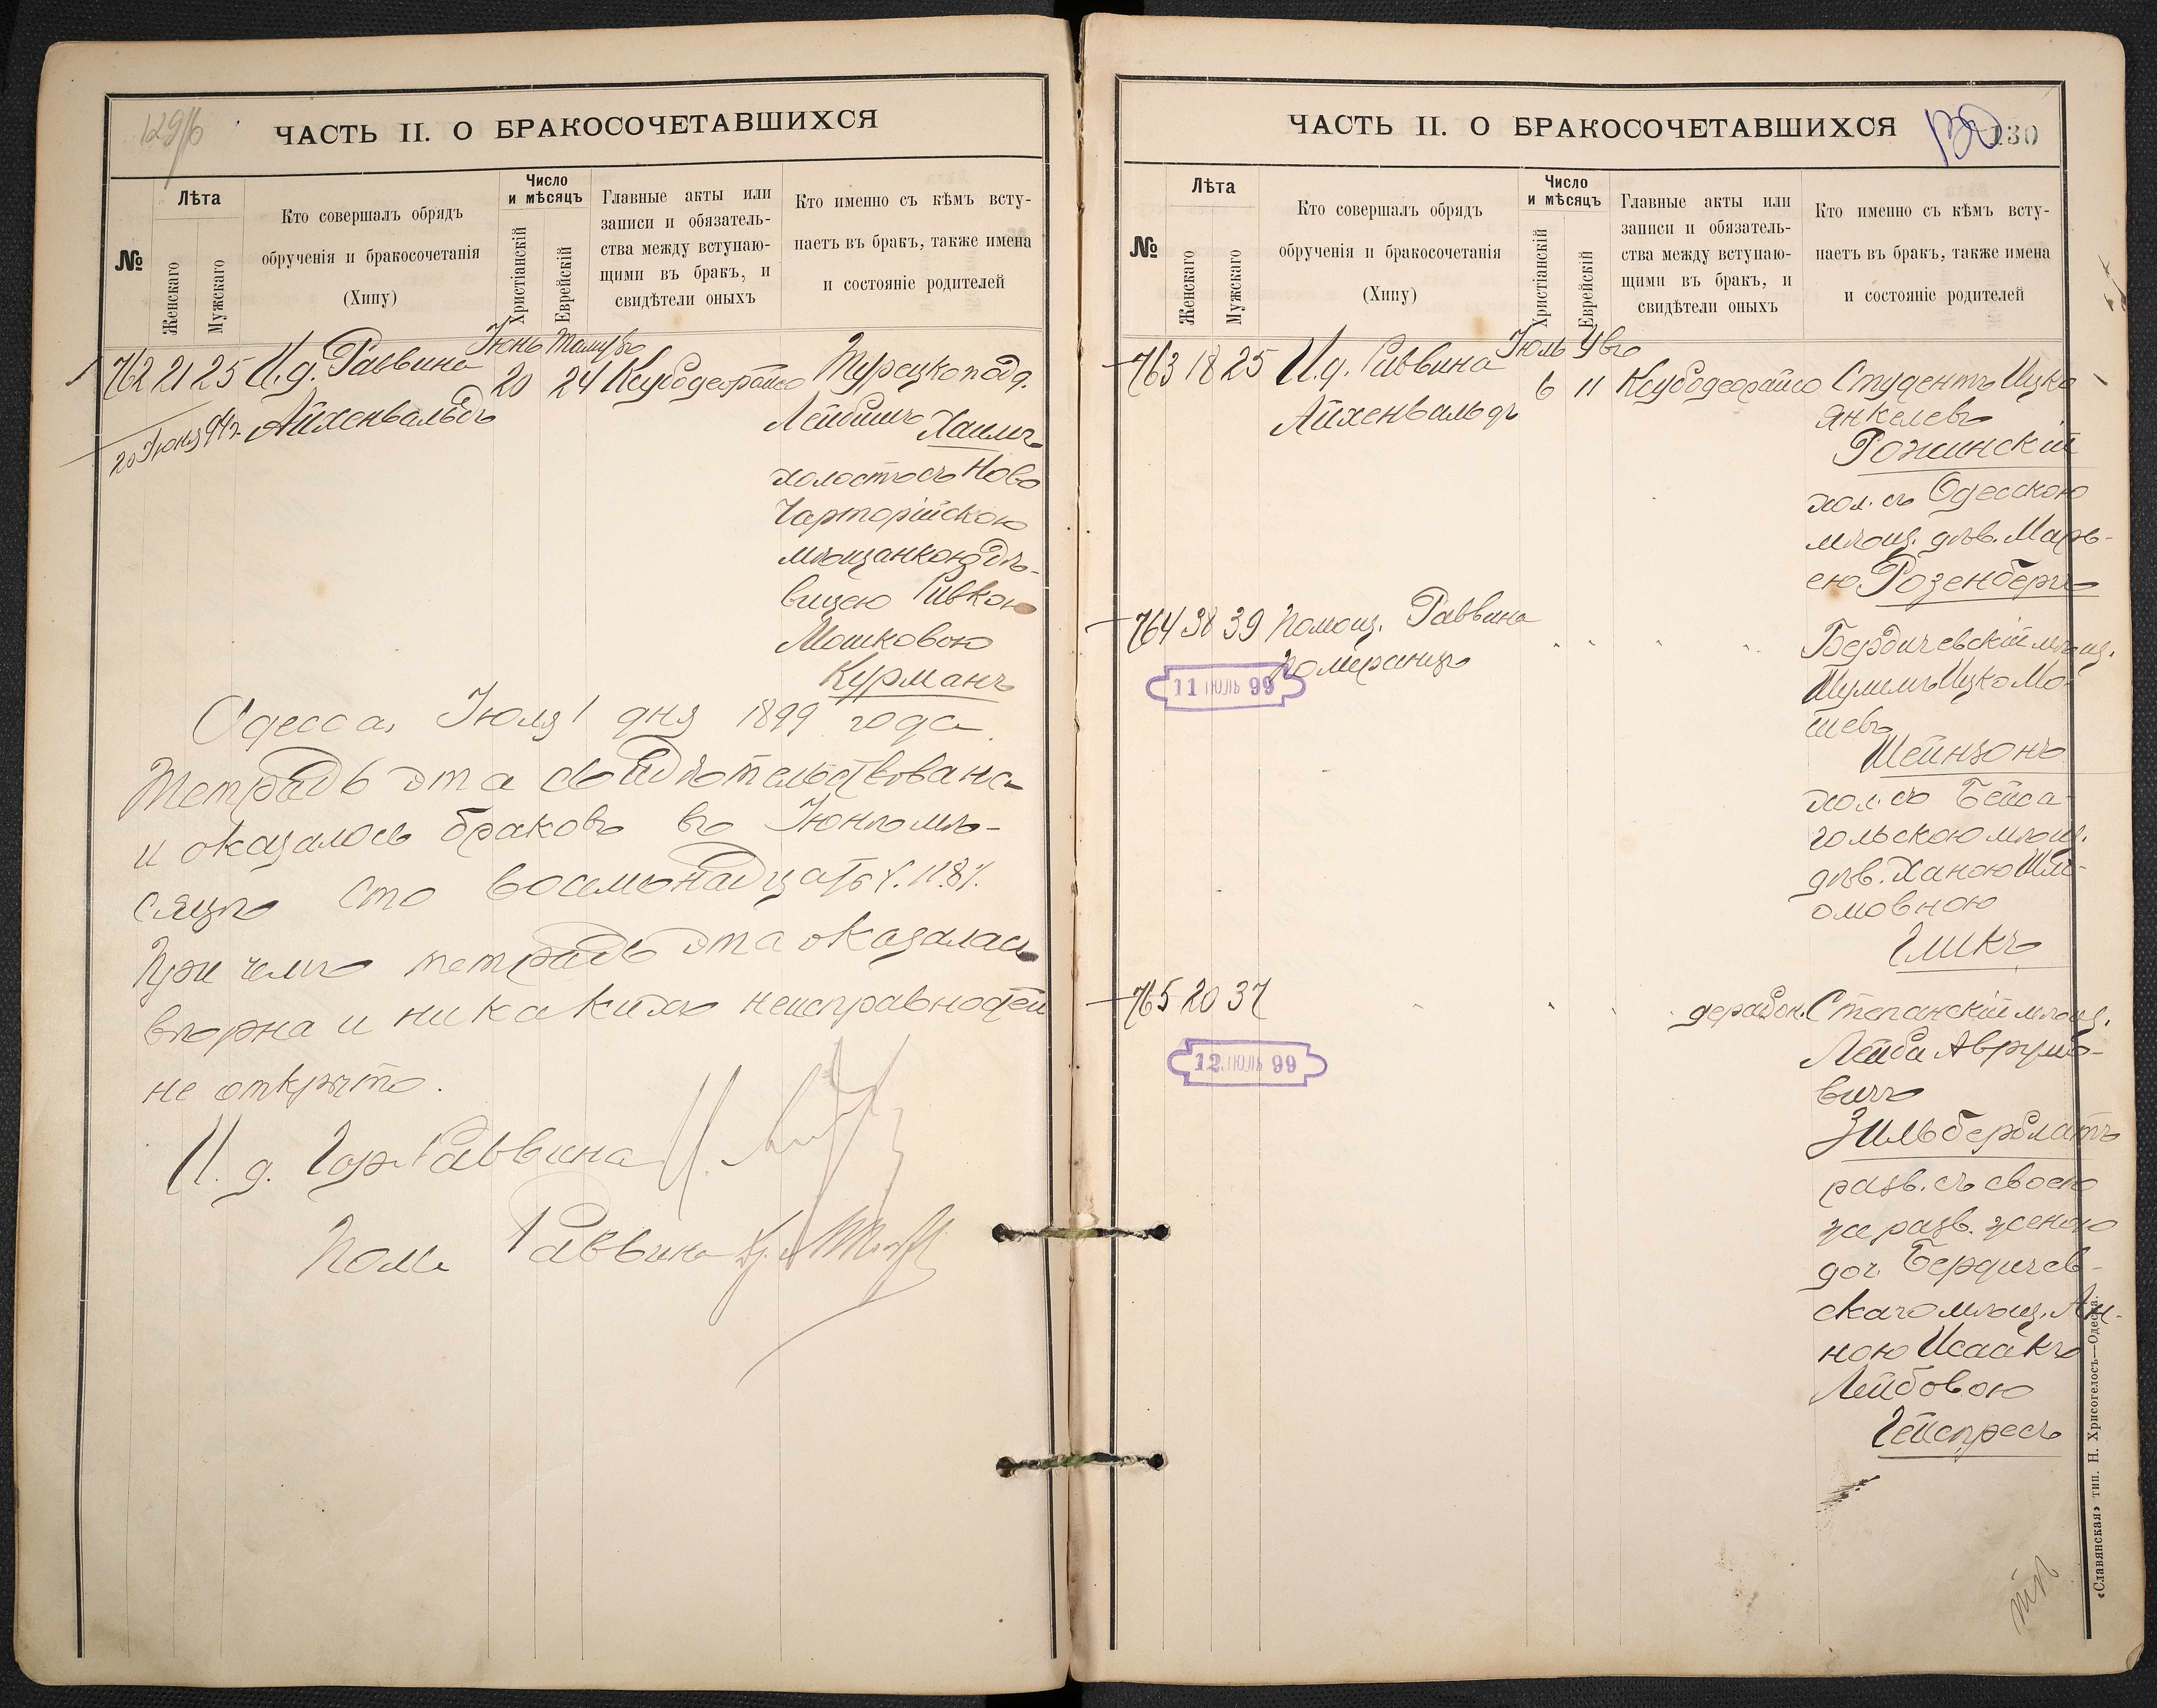 129/б
ЧАСТЬ II. О БРАКОСОЧЕТАВШИХСЯ
№
Лѣта
Женскаго
Мужскаго
Кто совершалъ обрядъ
обрученія и бракосочетанія
(Хипу)
Число
и мѣсяцъ
Христіанскій
Еврейскій
Главные акты или
записи и обязатель-
ства между вступаю-
щими въ бракъ, и
свидѣтели оныхъ
Кто именно съ кѣмъ всту-
паетъ въ бракъ, также имена
и состояніе родителей
762 21 25 И.д. Раввина
Айхенвальдъ
Іюнь Тамузъ
20 24
Турецкопод.
Лейбишъ Хаимъ
холостъ съ Ново
Чарторійскою
мѣщанкою дѣ-
вицею Ривкою
Мошковою
Курманъ
Одесса, Іюля 1 дня 1899 года.
Тетрадь эта свидѣтельствована
и оказалось браковъ въ Іюнѣ мѣ-
сяцѣ сто восемьнадцать
При чемъ тетрадь эта оказалась
вѣрна и никакихъ неисправностей
не открыто.
И. д. Гор. Раввина
Пом. Раввина
ЧАСТЬ II. О БРАКОСОЧЕТАВШИХСЯ
130
130
№
Лѣта
Женскаго
Мужскаго
Кто совершалъ обрядъ
обрученія и бракосочетанія
(Хипу)
Число
и мѣсяцъ
Христіанскій
Еврейскій
Главные акты или
записи и обязатель-
ства между вступаю-
щими въ бракъ, и
свидѣтели оныхъ
Кто именно съ кѣмъ всту-
паетъ въ бракъ, также имена
и состояніе родителей
763 18 25 И.д. Раввина
Айхенвальдъ
Іюль
6 11
Студентъ Ицко
Янкелевъ
Рожинскій
хол. съ Одесскою
мѣщ. дѣв. Марь-
ею Розенбергъ
764 38 39 Помощ. Раввина
Померанцъ
11 ІЮЛЬ 99
Бердичевскій мѣщ.
Шулимъ Ицко Мо-
шевъ
Шейнзонъ
хол. съ Бейса-
гольскою мѣщ.
дѣв. Ханою Шли-
омовною
Гликъ
765 20 37
12 ІЮЛЬ 99
Степанскій мѣщ.
Лейба Аврумо-
вичъ
Зильберблатъ
разв. съ своею
же разв. женою
доч. Бердичев-
скаго мѣщ. Ан-
ною Исаакъ
Лейбовою
Гейспресъ
«Славянская» тип. Н. Хрисогелосъ—Одесса.